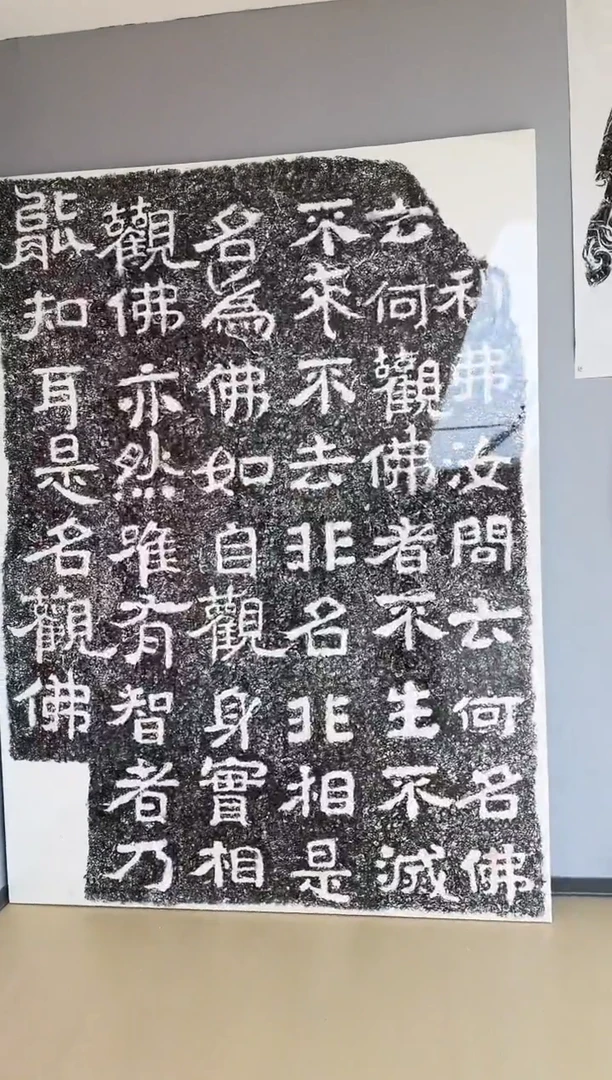 利弗汝問云何名佛
云何觀佛者不生不滅
不来不去非名非相是
名為佛如自觀身實相
觀佛亦然唯有智者乃
能知耳是名觀佛